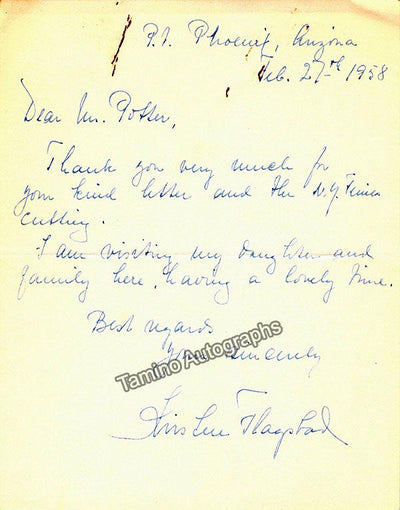 P.T. Phoenix, Arizona
Feb. 27th 1958
Dear Mr. Potter,
Thank you very much for
your kind letter and the N.Y. Times
cutting.
I am visiting my daughter and
family here, having a lovely time.
Best regards
Yours sincerely
Tamino Autographs
Kirsten Flagstad